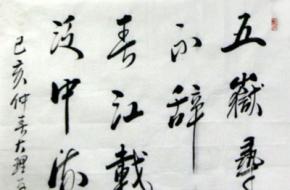 五嶽尋
不辭
春江載
泛中流
己亥仲春大理